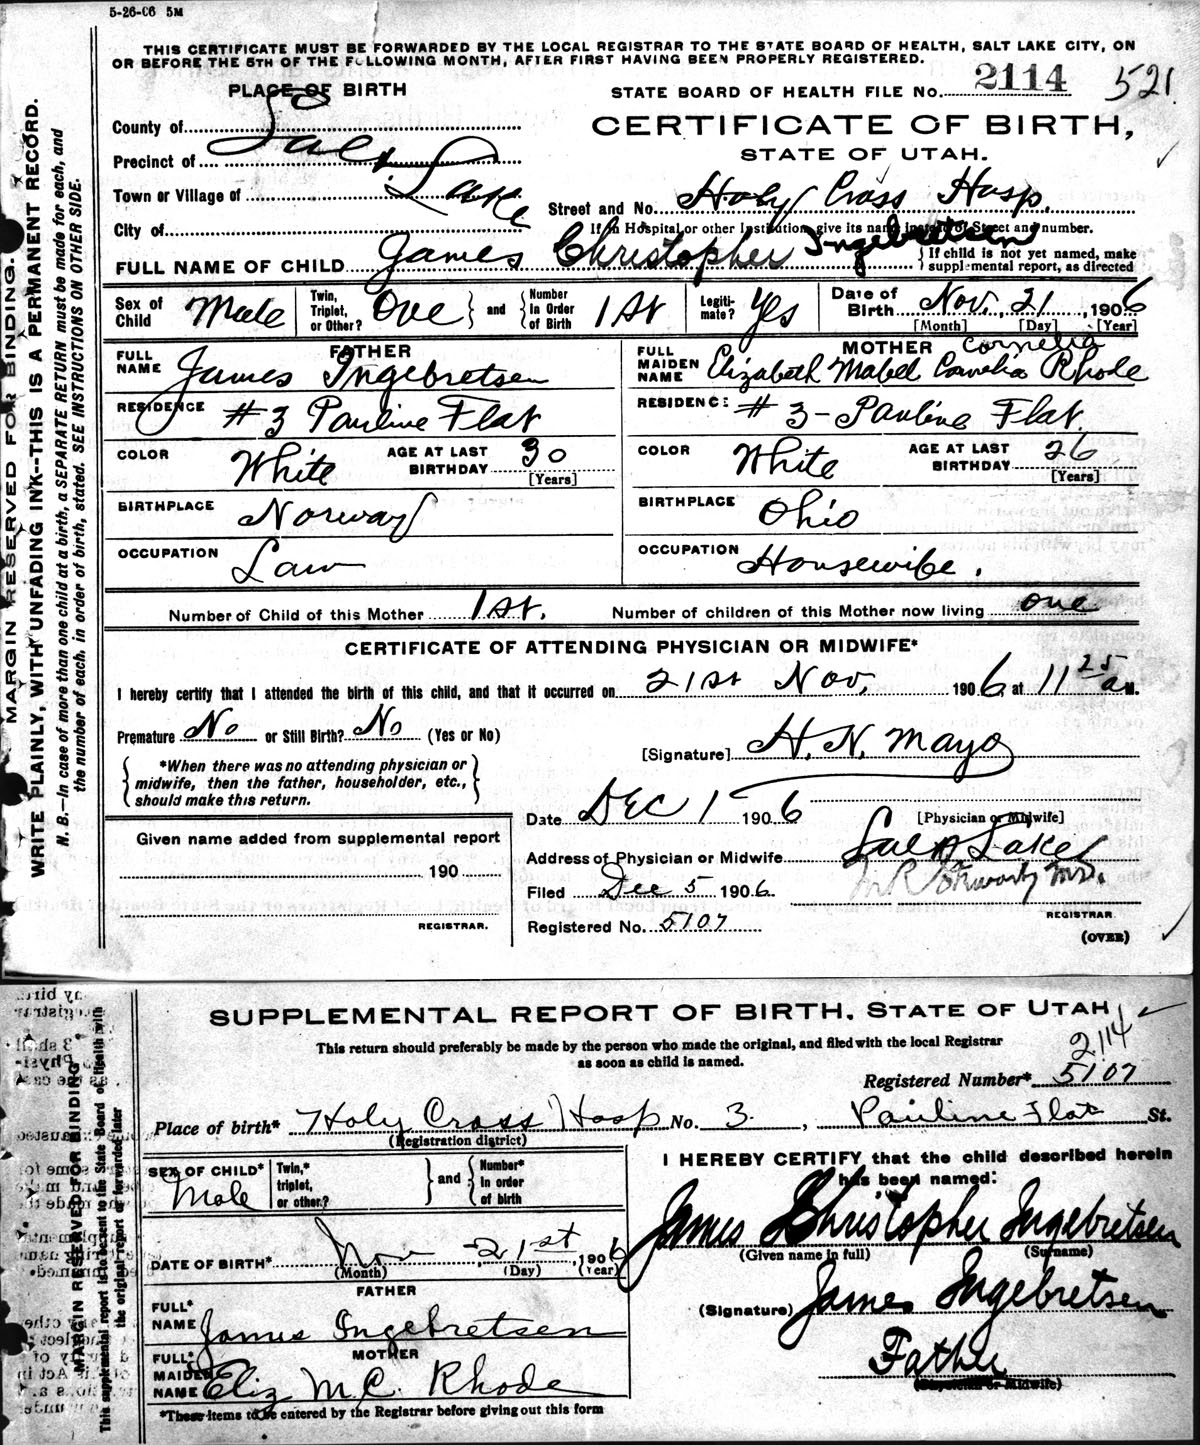 5-26-06 5M
THIS CERTIFICATE MUST BE FORWARDED BY THE LOCAL REGISTRAR TO THE STATE BOARD OF HEALTH, SALT LAKE CITY, ON
OR BEFORE THE 5TH OF THE FOLLOWING MONTH, AFTER FIRST HAVING BEEN PROPERLY REGISTERED.
MARGIN RESERVED FOR BINDING.
WRITE PLAINLY, WITH UNFADING INK--THIS IS A PERMANENT RECORD.
N. B.—In case of more than one child at a birth, a SEPARATE RETURN must be made for each, and
the number of each, in order of birth, stated. SEE INSTRUCTIONS ON OTHER SIDE.
PLACE OF BIRTH
STATE BOARD OF HEALTH FILE No. 2114 521
County of
Precinct of
Town or Village of
City of
Salt Lake
CERTIFICATE OF BIRTH,
STATE OF UTAH.
Street and No. Holy Cross Hosp.
If in Hospital or other Institution, give its name instead of Street and number.
FULL NAME OF CHILD James Christopher Ingebretsen
If child is not yet named, make
supplemental report, as directed
Sex of Child Male Twin, Triplet, or Other? One and Number In Order of Birth 1st Legiti-mate? Yes Date of Birth Nov. 21, 1906
[Month] [Day] [Year]
FATHER
FULL NAME James Ingebretsen
RESIDENCE #3 Pauline Flat
COLOR White AGE AT LAST BIRTHDAY 30
[Years]
BIRTHPLACE Norway
OCCUPATION Law
MOTHER Cornelia
FULL MAIDEN NAME Elizabeth Mabel Cornelia Rhode
RESIDENCE #3- Pauline Flat.
COLOR White AGE AT LAST BIRTHDAY 26
[Years]
BIRTHPLACE Ohio
OCCUPATION Housewife.
Number of Child of this Mother 1st. Number of children of this Mother now living one
CERTIFICATE OF ATTENDING PHYSICIAN OR MIDWIFE*
I hereby certify that I attended the birth of this child, and that it occurred on 21st Nov, 1906, at 11 25 a M.
Premature No or Still Birth? No (Yes or No)
*When there was no attending physician or
midwife, then the father, householder, etc.,
should make this return.
[Signature] H. N. Mayo
Date Dec 1 1906
[Physician or Midwife]
Address of Physician or Midwife Salt Lake
Filed Dec 5 1906.
M.D.
REGISTRAR.
Registered No. 5107
(OVER)
Given name added from supplemental report
190
REGISTRAR.
SUPPLEMENTAL REPORT OF BIRTH, STATE OF UTAH
This return should preferably be made by the person who made the original, and filed with the local Registrar
as soon as child is named.
2114
Registered Number* 5107
MARGIN RESERVED FOR BINDING
This supplemental report is to be sent to the State Board of Health with
the original report or forwarded later
Place of birth* Holy Cross Hosp No. 3, Pauline Flat St.
(Registration district)
SEX OF CHILD* Male Twin,* triplet, or other? and Number* in order of birth
DATE OF BIRTH* Nov 21st, 1906
(Month) (Day) (Year)
FATHER
FULL* NAME James Ingebretsen
MOTHER
FULL* MAIDEN NAME Eliz M.C. Rhode
*These items to be entered by the Registrar before giving out this form
I HEREBY CERTIFY that the child described herein
has been named:
James Christopher Ingebretsen
(Given name in full) (Surname)
(Signature) James Ingebretsen
Father
(Physician or Midwife)